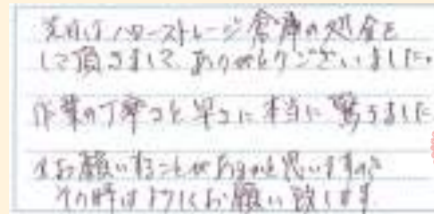 先日はハローストレージ倉庫の処分を
して頂きまして ありがとうございました。
作業の丁寧さと早さに本当に驚きました
お願いすることがあるかと思いますので
その時は よろしくお願い致します